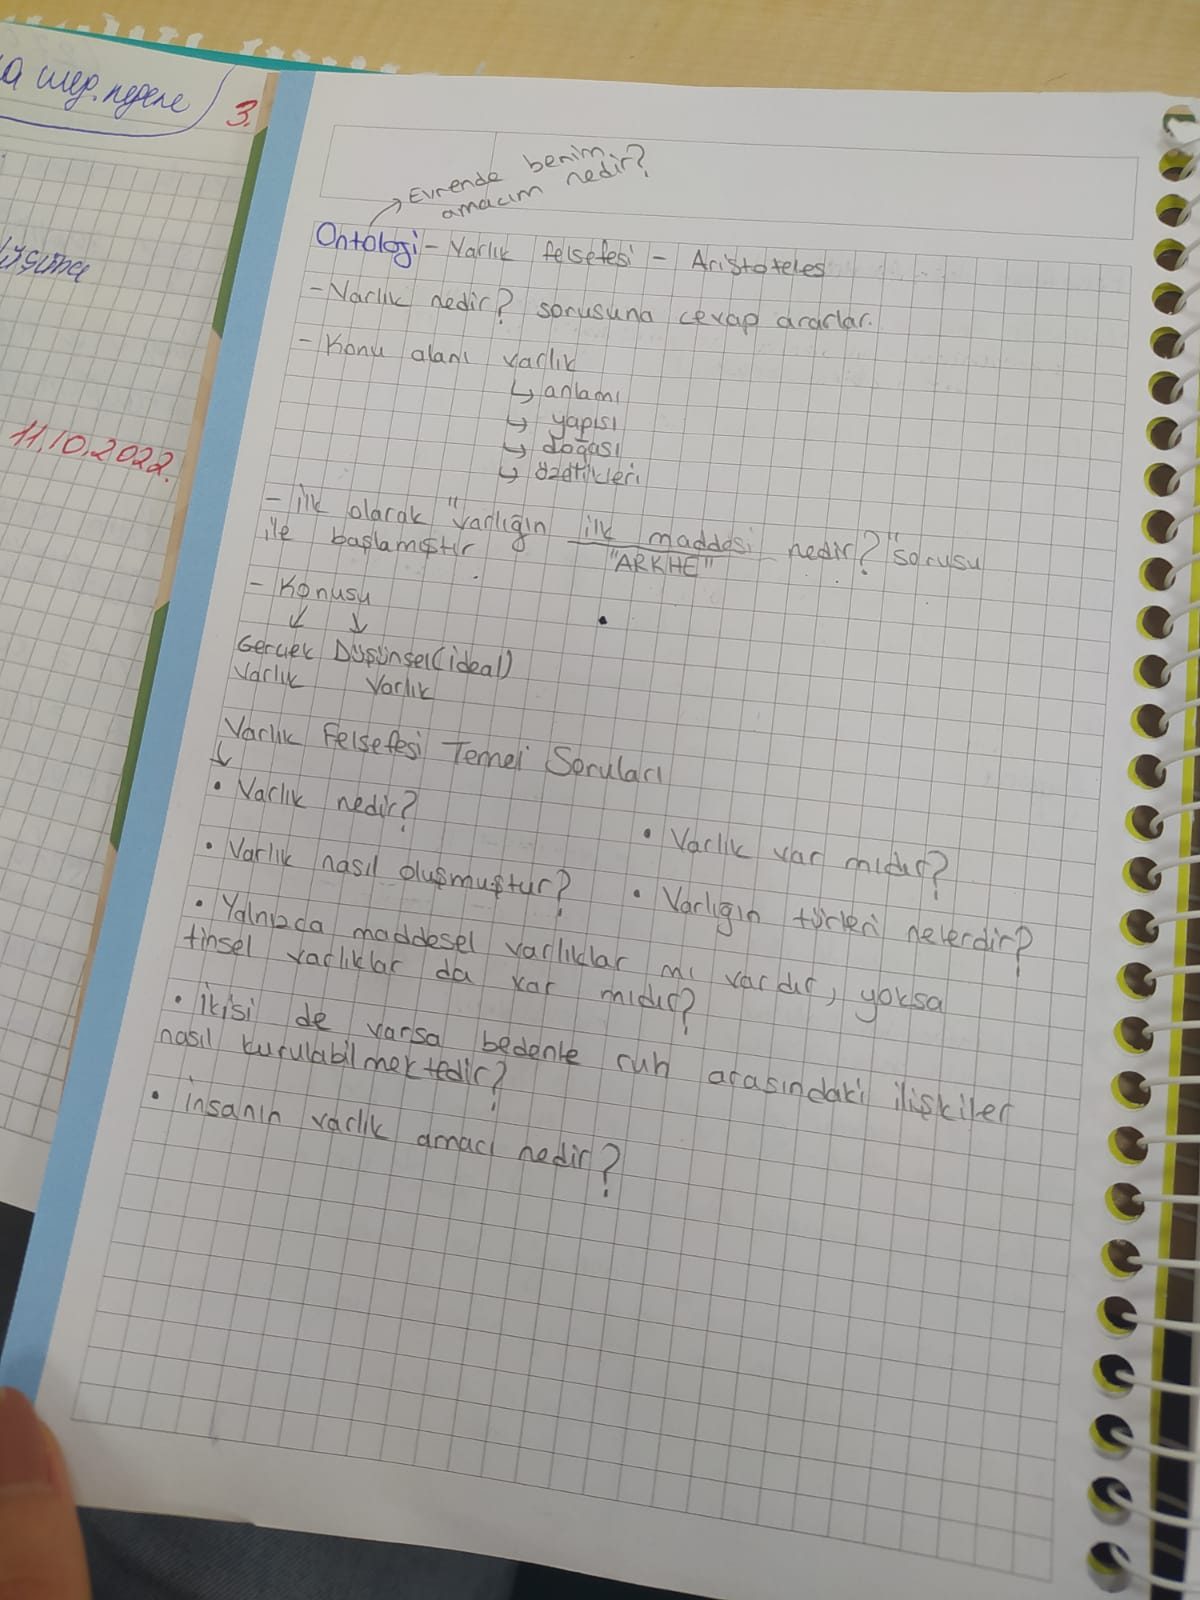 3.
11.10.2022.
Evrende benim
amacım nedir?
Ontoloji - Varlık felsefesi - Aristoteles
- Varlık nedir? sorusuna cevap ararlar.
- Konu alanı varlık
↳ anlamı
↳ yapısı
↳ doğası
↳ özellikleri
- ilk olarak "varlığın ilk maddesi nedir?" sorusu
ile başlamıştır "ARKHE"
- Konusu
Gerçek Düşünsel(ideal)
Varlık Varlık
Varlık Felsefesi Temel Soruları
• Varlık nedir?
• Varlık var mıdır?
• Varlık nasıl oluşmuştur?
• Varlığın türleri nelerdir?
• Yalnızca maddesel varlıklar mı vardır, yoksa
tinsel varlıklar da var mıdır?
• İkisi de varsa bedenle ruh arasındaki ilişkiler
nasıl kurulabilmektedir?
• insanın varlık amacı nedir?